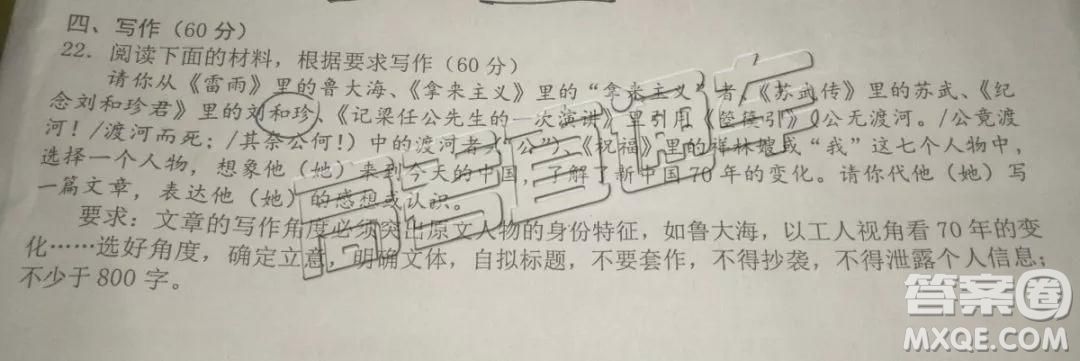 四、写作（60分）
22. 阅读下面的材料，根据要求写作（60分）
请你从《雷雨》里的鲁大海、《拿来主义》里的“拿来主义”者、《苏武传》里的苏武、《纪
念刘和珍君》里的刘和珍、《记梁任公先生的一次演讲》里引用《箜篌引》（公无渡河。/公竟渡
河！/渡河而死；/其奈公何！）中的渡河者（“公”）、《祝福》里的祥林嫂或“我”这七个人物中，
选择一个人物，想象他（她）来到今天的中国，了解了新中国70年的变化。请你代他（她）写
一篇文章，表达他（她）的感想或认识。
要求：文章的写作角度必须突出原文人物的身份特征，如鲁大海，以工人视角看70年的变
化……选好角度，确定立意，明确文体，自拟标题，不要套作，不得抄袭，不得泄露个人信息；
不少于800字。
答案圈
MXQE.COM